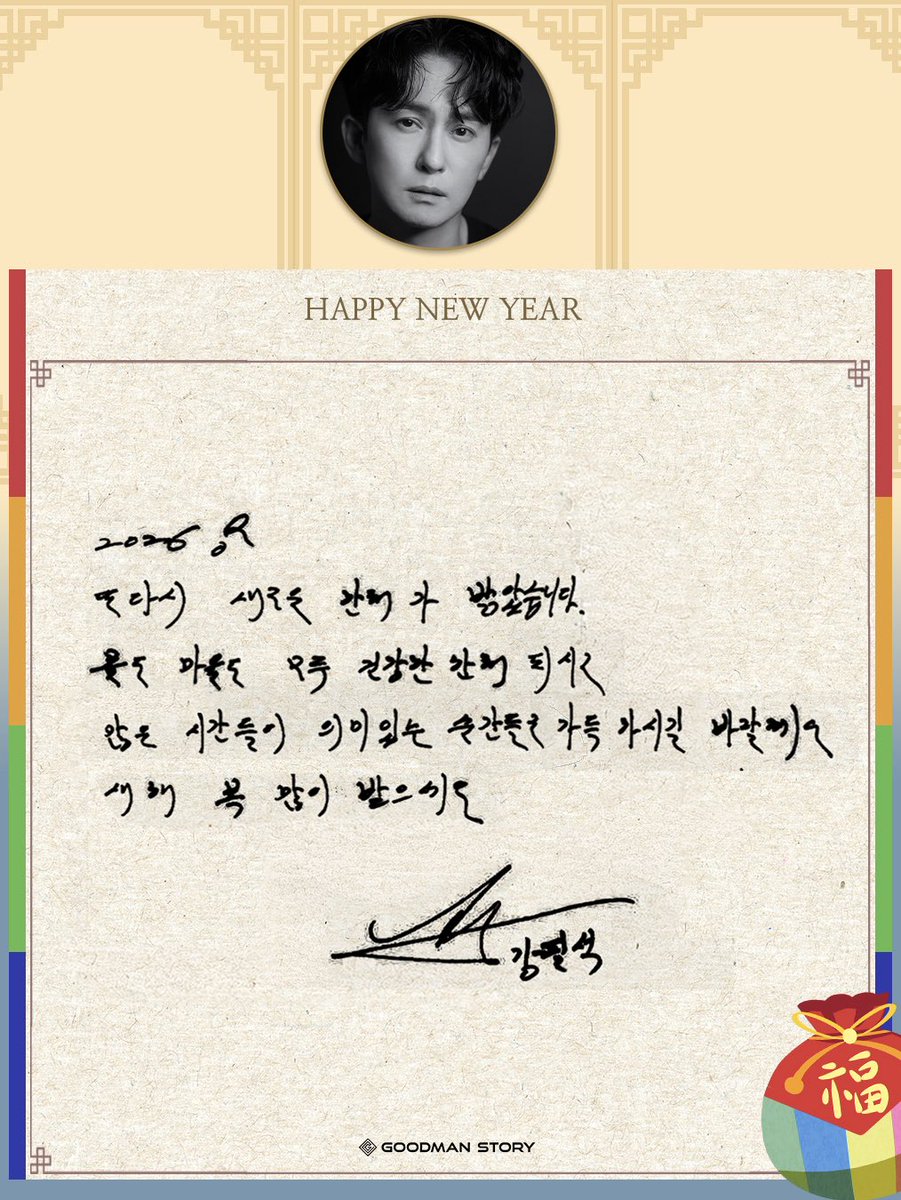 HAPPY NEW YEAR
2026
또다시 새로운 한해가 밝았습니다.
몸도 마음도 모두 건강한 한해 되시고
많은 시간들이 의미있는 순간들로 가득 하시길 바랄게요
새해 복 많이 받으세요
강필석
福
GOODMAN STORY